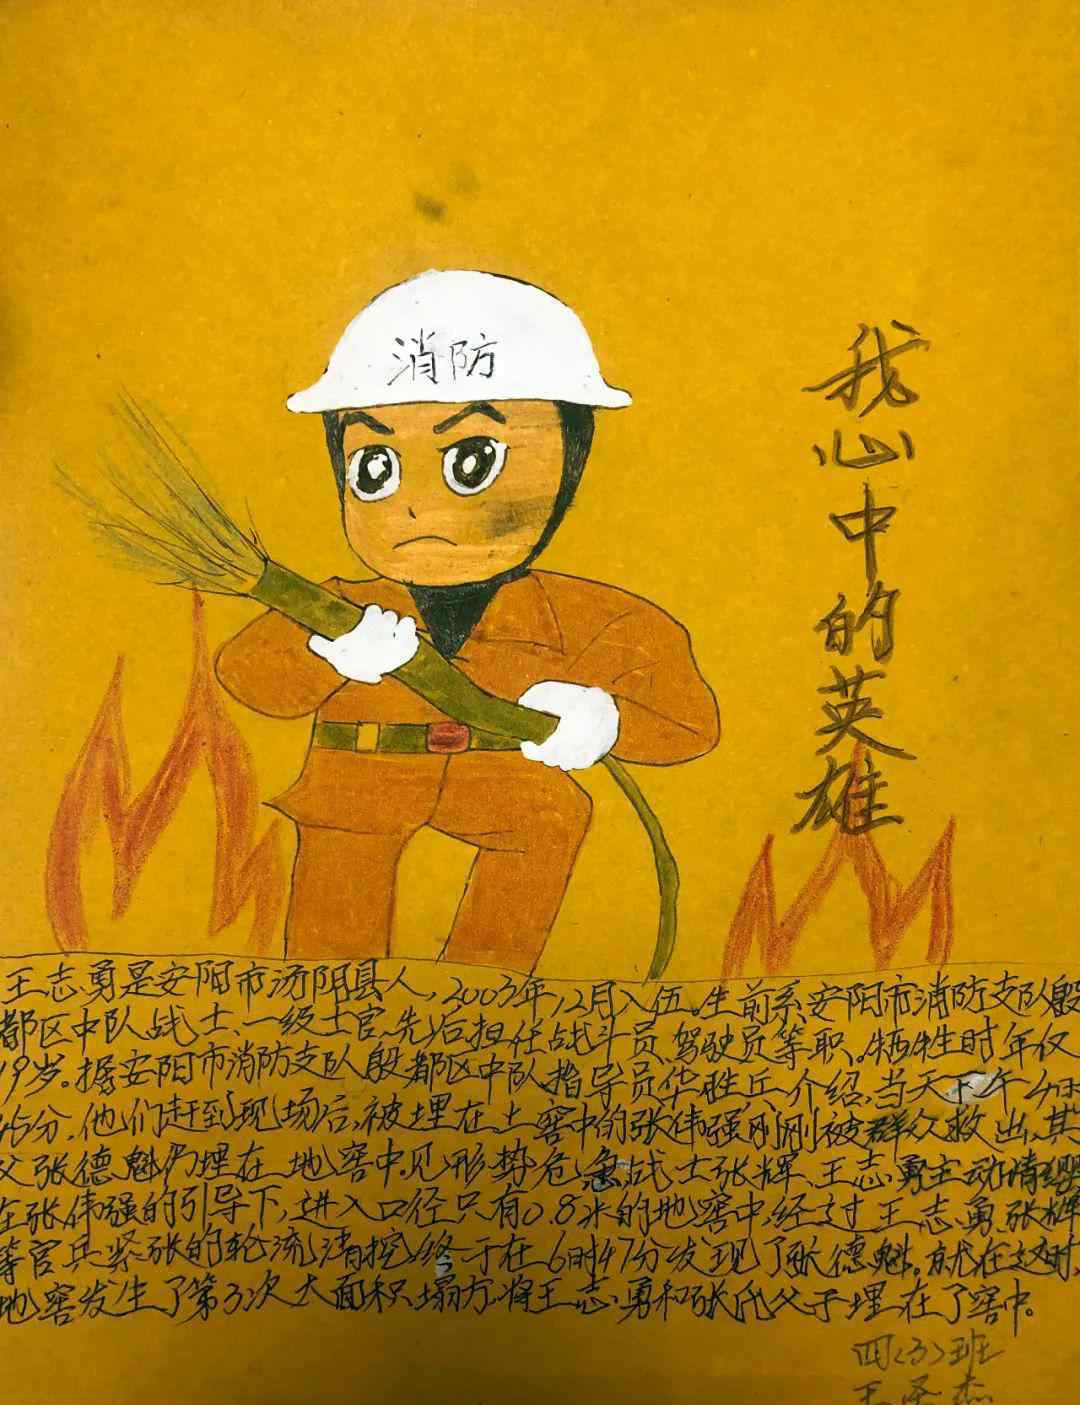 消防
我心中的英雄
王志勇是安阳市汤阴县人，2003年，12月入伍。生前系安阳市消防支队殷
都区中队战士、一级士官，先后担任战斗员、驾驶员等职。牺牲时年仅
19岁。据安阳市消防支队殷都区中队指导员华胜丘介绍，当天下午4时
45分，他们赶到现场后，被埋在土窖中的张伟强刚刚被群众救出，其
父张德魁仍埋在地窖中。见形势危急，战士张辉、王志勇主动请缨
在张伟强的引导下，进入口径只有0.8米的地窖中，经过王志勇、张辉
等官兵紧张的轮流清挖，终于在6时47分发现了张德魁。就在这时，
地窖发生了第3次大面积塌方，将王志勇和张氏父子埋在了窖中。
四（3）班
王圣杰